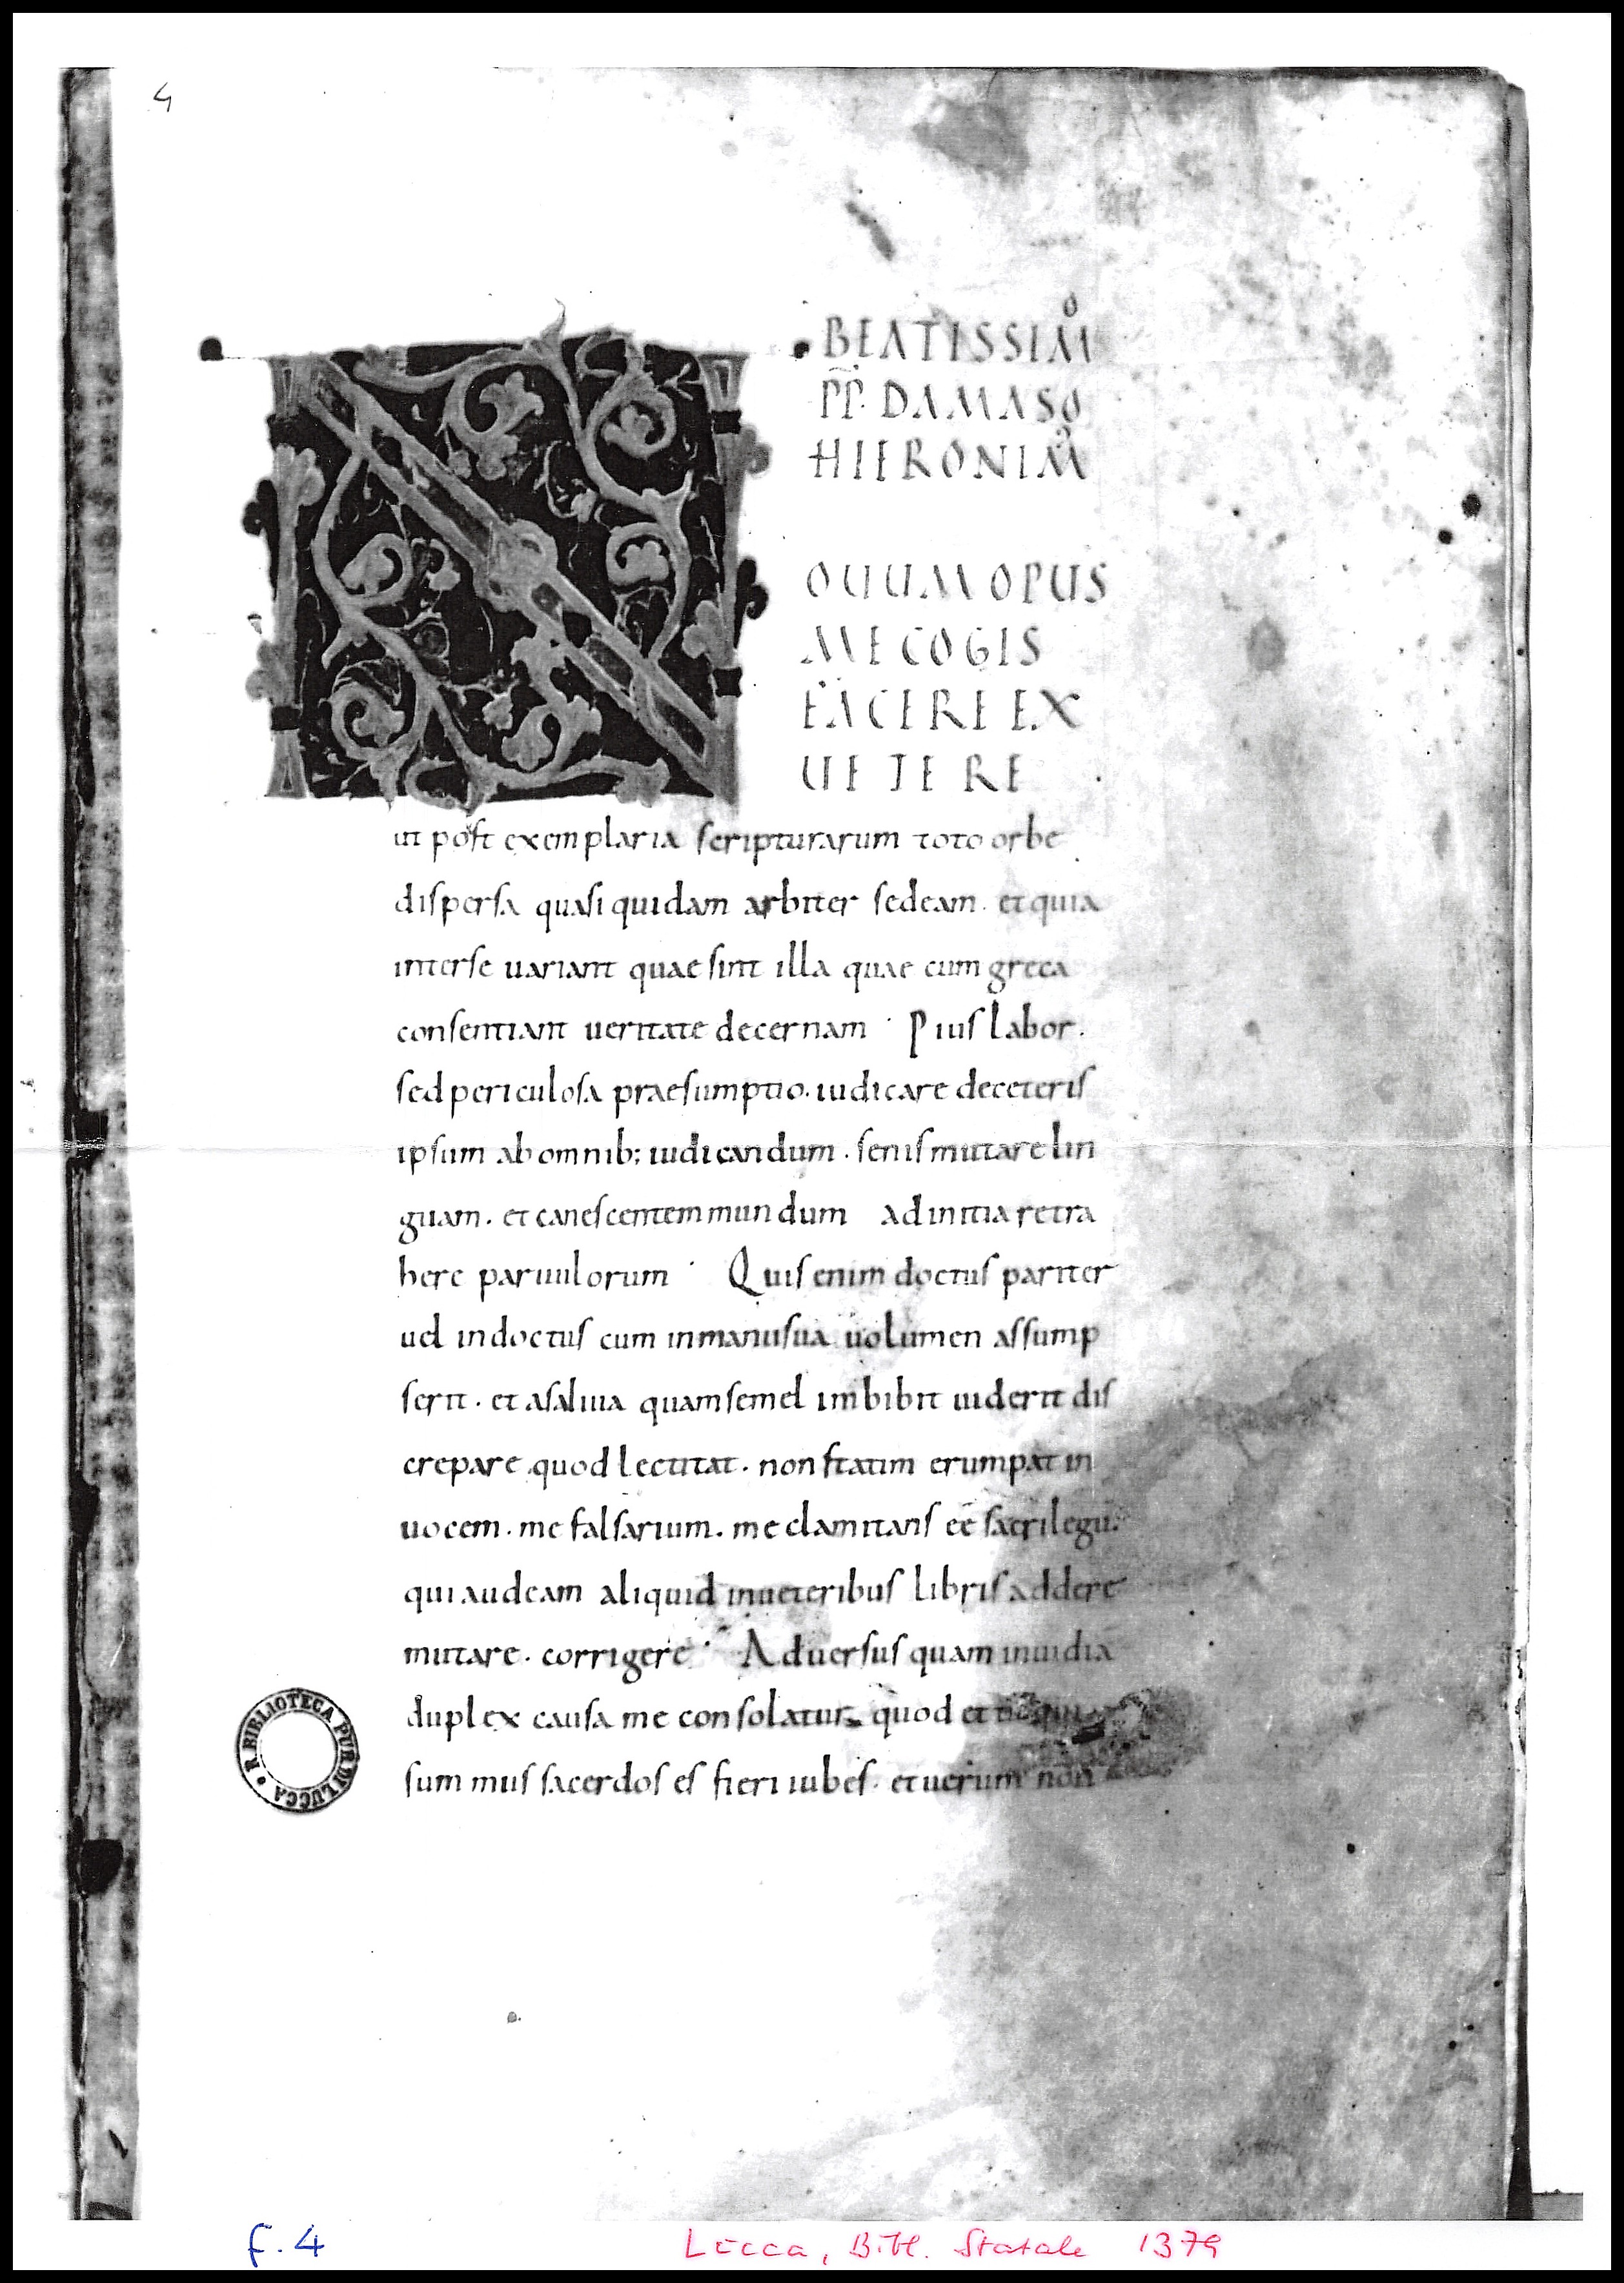 4
BEATISSIMͦ
P̅P̅. DAMASO
HIERONIMꝰ
NOUUM OPUS
ME COGIS
FACERE EX
UETERE
ut post exemplaria scripturarum toto orbe
dispersa quasi quidam arbiter sedeam. et quia
inter se uariant quae sint illa quae cum greca
consentiant ueritate decernam · Pius labor.
sed periculosa praesumptio. iudicare de ceteris
ipsum ab omnib; iudicandum. senis mutare lin
guam. et canescentem mundum ad initia retra
here paruulorum · Quis enim doctus pariter
uel indoctus cum in manu sua uolumen assump
serit. et a saliua quam semel imbibit uiderit dis
crepare quod lectitat. non statim erumpat in
uocem. me falsarium. me clamitans ee̅ sacrilegu̅.
qui audeam aliquid in ueteribus libris addere
mutare. corrigere · Aduersus quam inuidia
duplex causa me consolatur. quod et qui
summus sacerdos es fieri iubes. et uerum non
R. BIBLIOTECA PUB. DI LUCCA
f. 4
Lucca, Bibl. Statale 1379